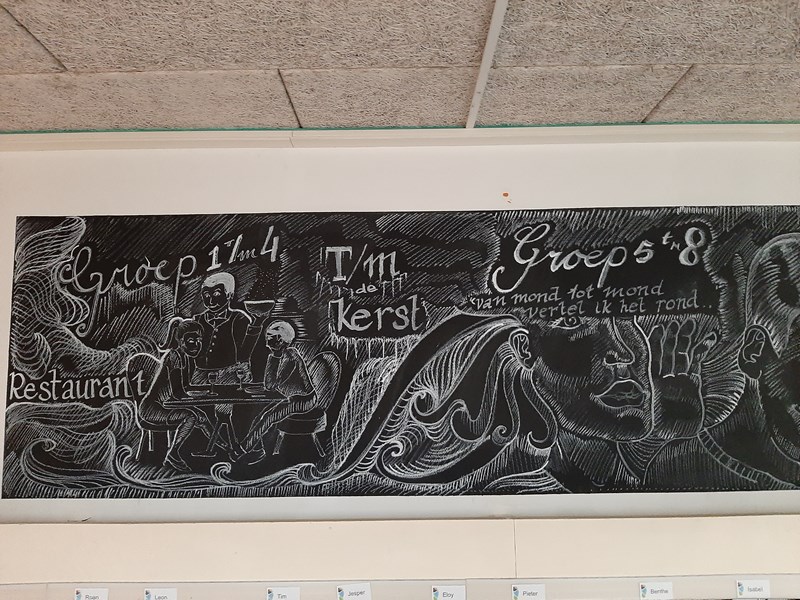 Groep 1 T/m 4
Restaurant
T/m
de
kerst
Groep 5 t/m 8
van mond tot mond
vertel ik het rond..
Roan
Leon
Tim
Jesper
Eloy
Pieter
Benthe
Isabel